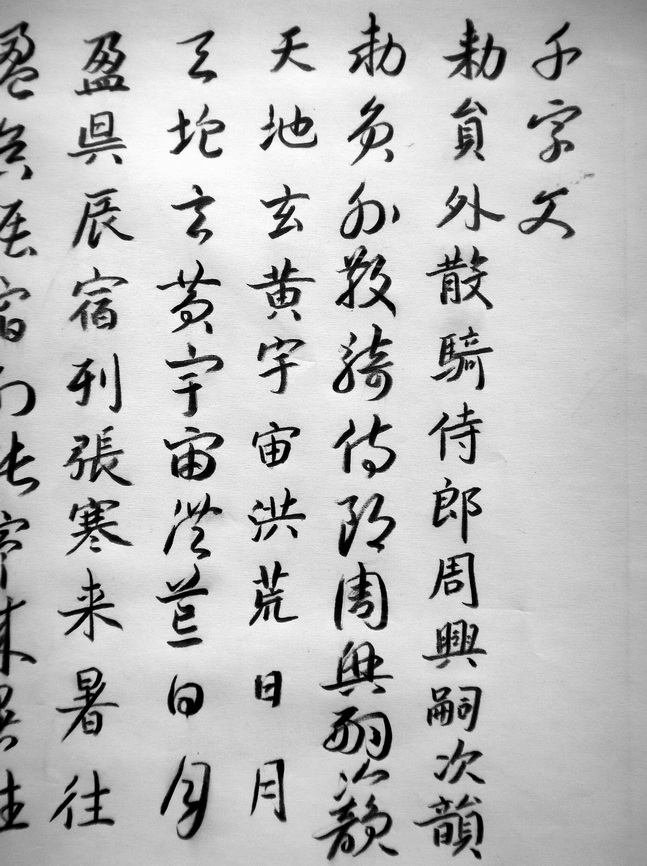 千字文
勅員外散騎侍郎周興嗣次韻
勅員外散騎侍郎周興嗣次韻
天地玄黄宇宙洪荒日月
天地玄黄宇宙洪荒日月
盈昃辰宿列張寒来暑往
盈昃辰宿列張寒来暑往